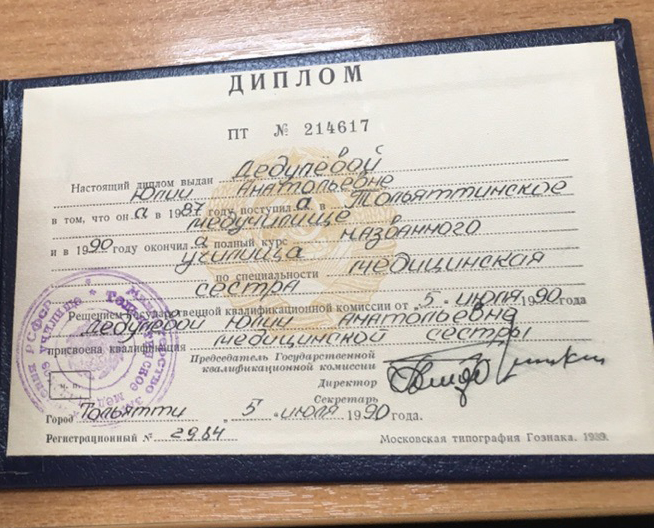 ДИПЛОМ
ПТ № 214617
Настоящий диплом выдан Дедулевой
Юлии Анатольевне
в том, что он а в 1987 году поступил а в Тольяттинское
медучилище
и в 1990 году окончил а полный курс названного
училища
по специальности медицинская
сестра
Решением Государственной квалификационной комиссии от „ 5 " июля 1990 года
Дедулевой Юлии Анатольевне
присвоена квалификация медицинской сестры
Председатель Государственной
квалификационной комиссии
Директор
Секретарь
М. П.
Город Тольятти „ 5 " июля 1990 года.
Регистрационный № 2984
Московская типография Гознака. 1989.